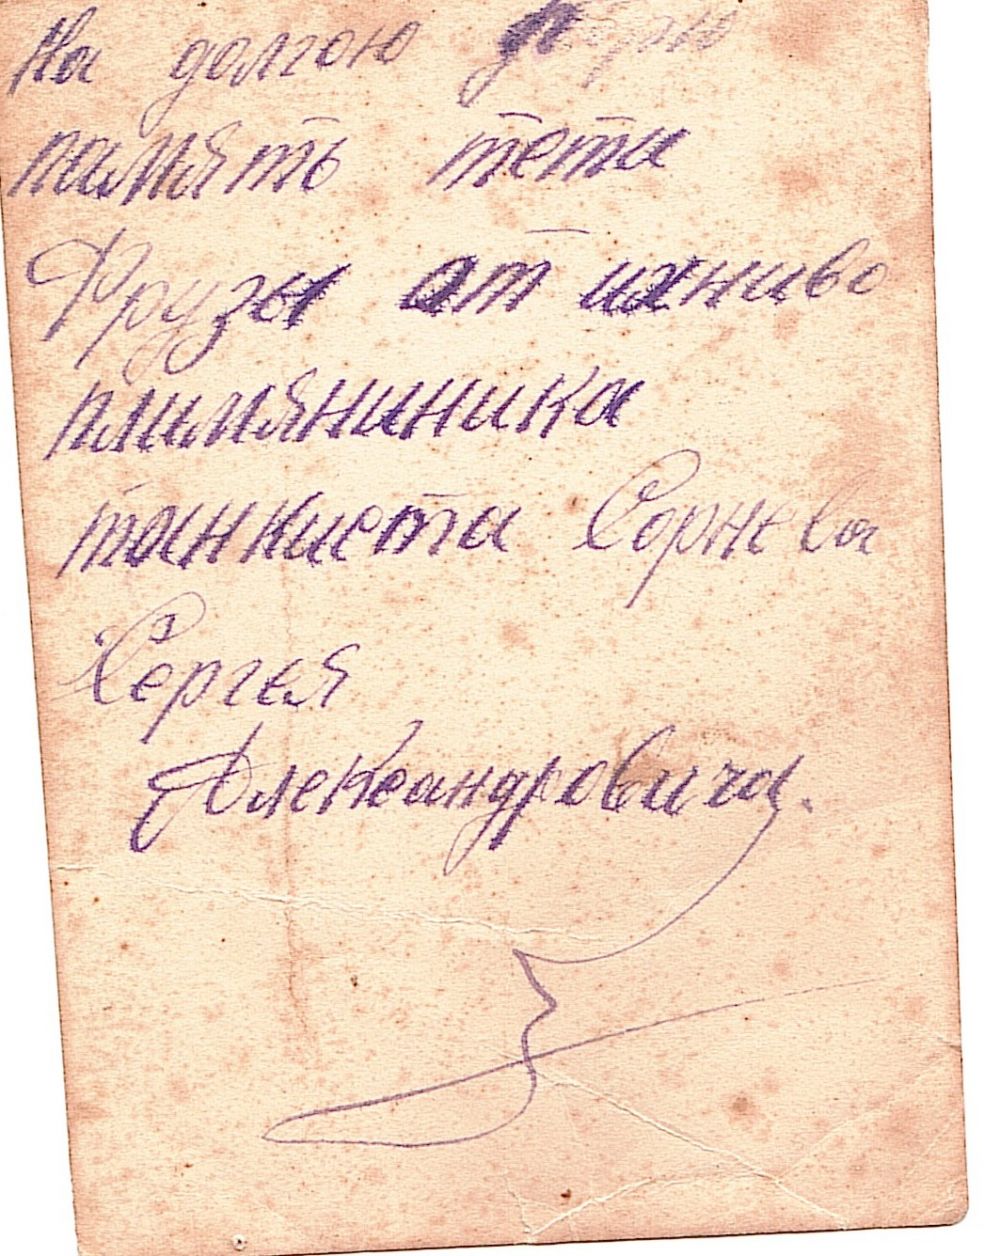 На долгою
память тети
Фрузы от ихниво
плимяниника
танкиста Сорнева
Сергея
Александровича.